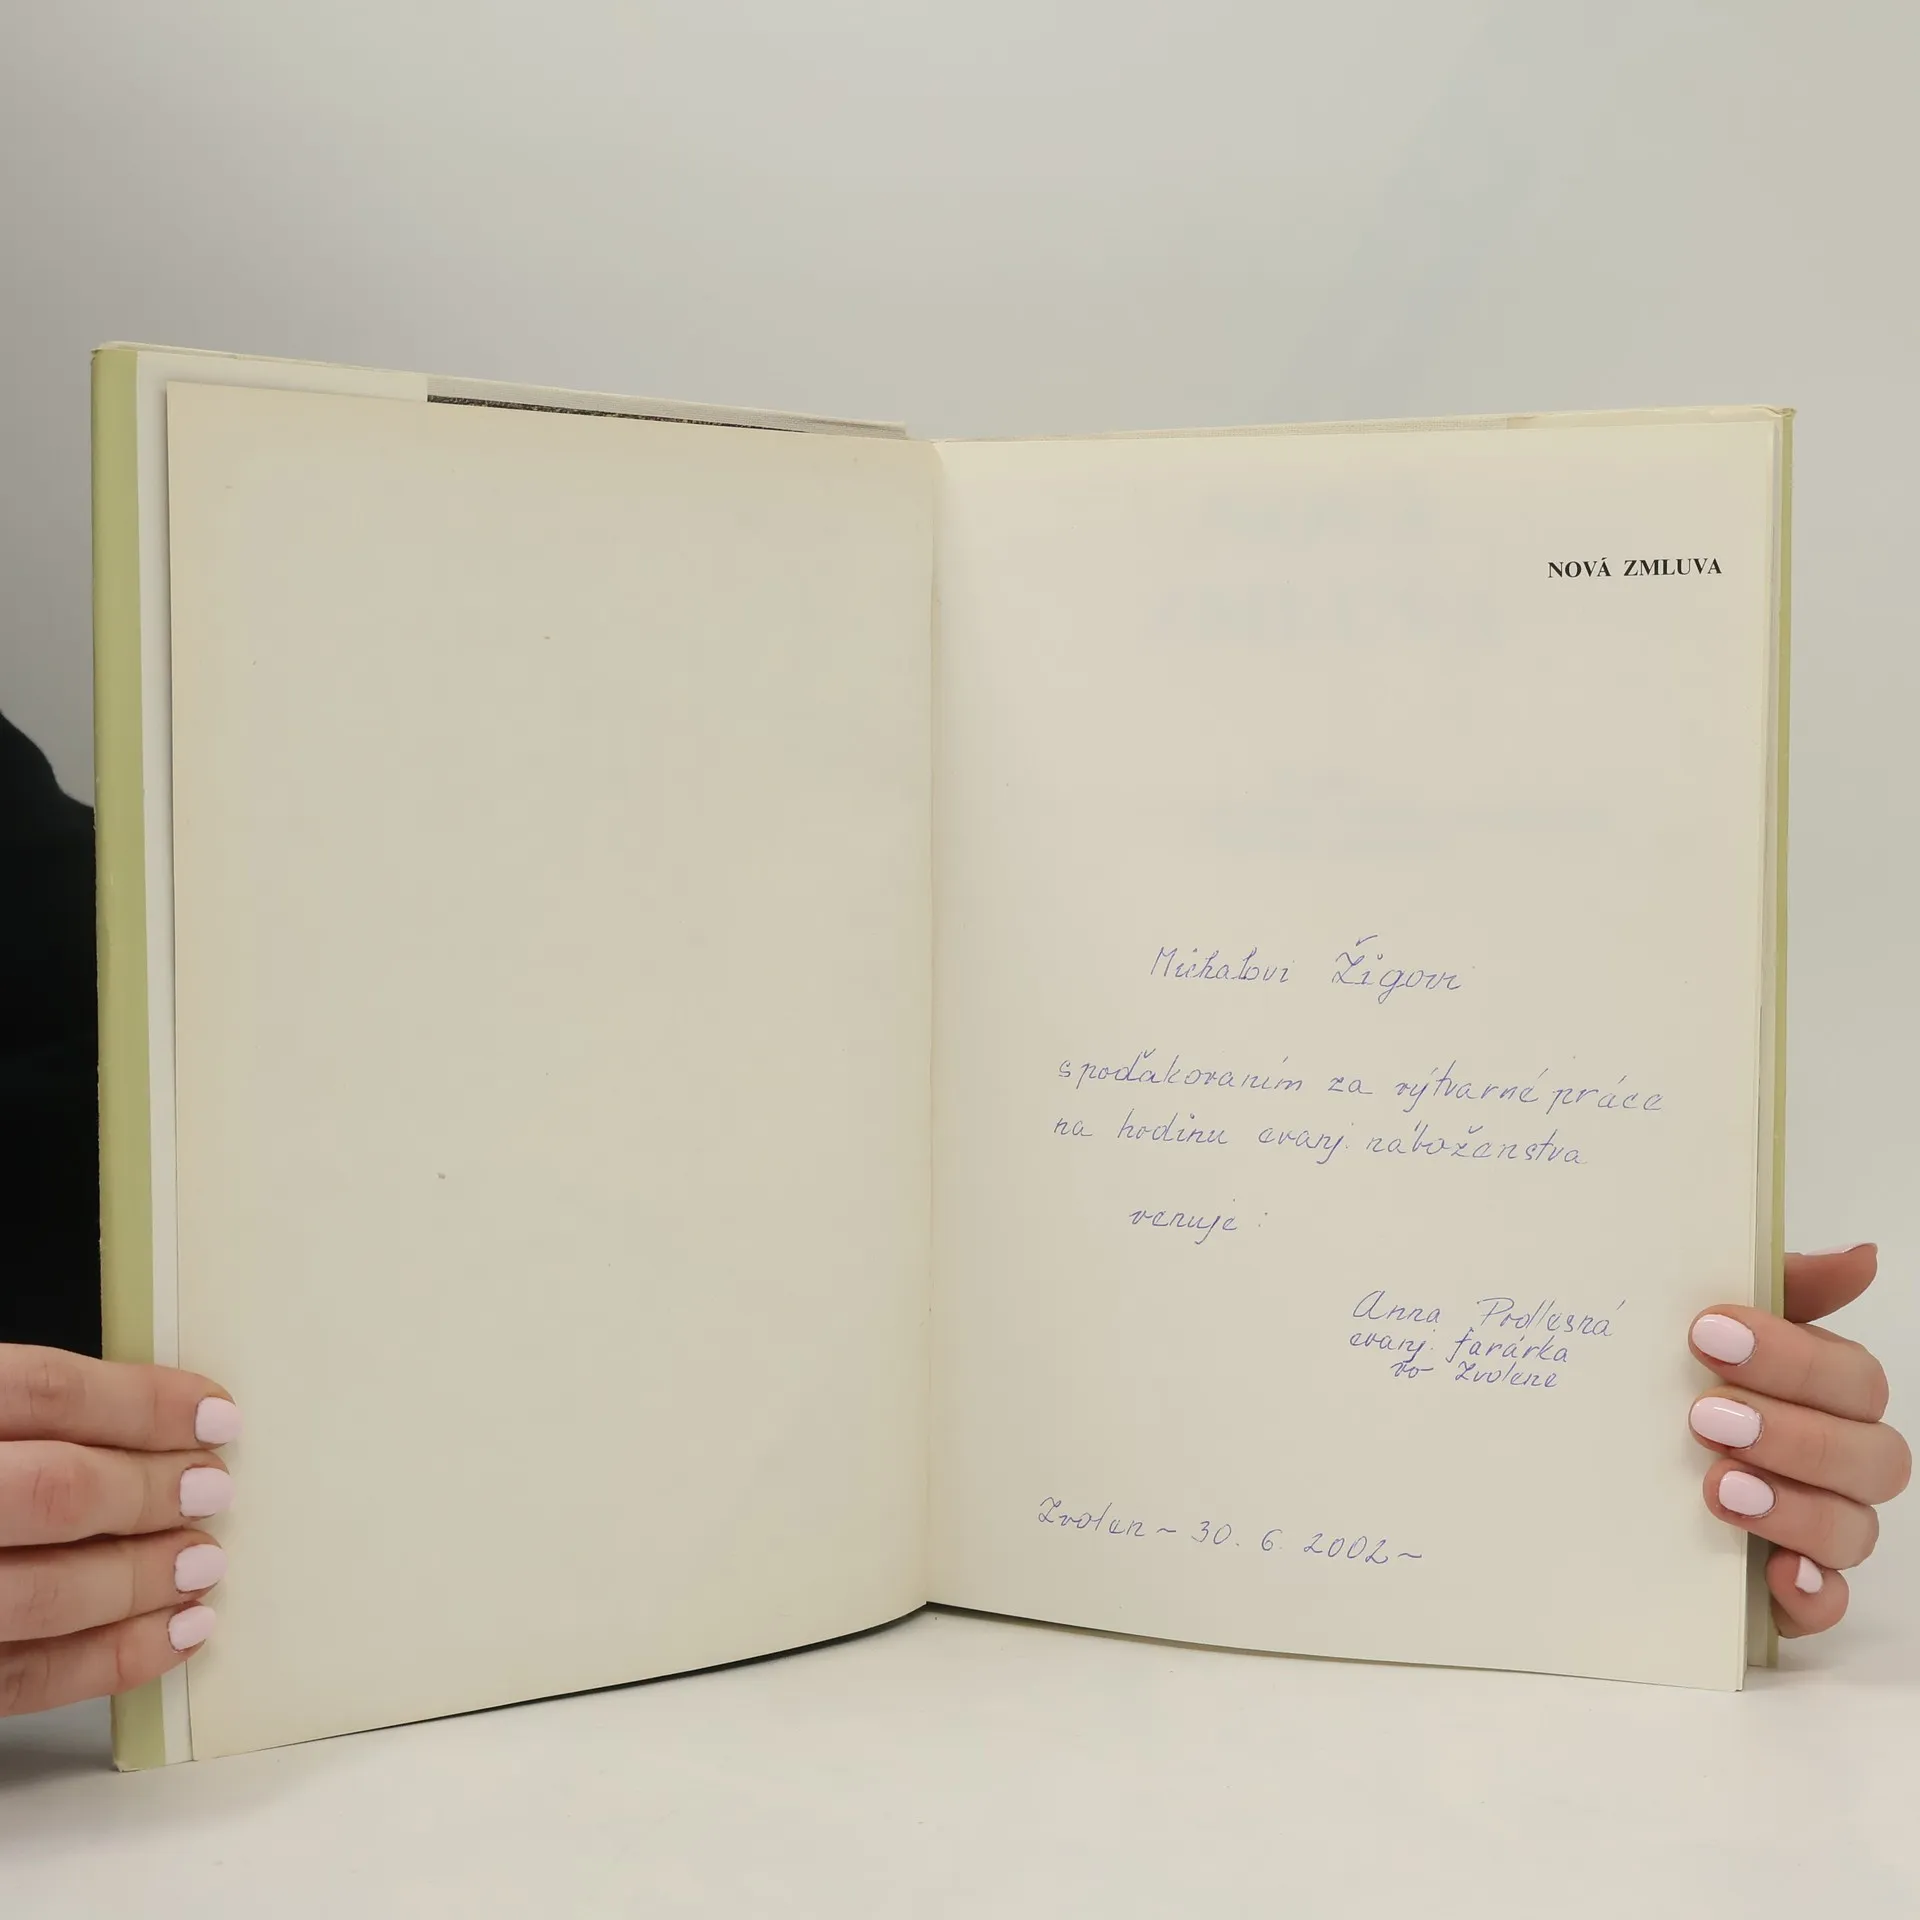 NOVÁ ZMLUVA
Michalovi Žigovi
s poďakovaním za výtvarné práce
na hodinu evanj. náboženstva
venuje :
Anna Podlesná
evanj. farárka
vo Zvolene
Zvolen ~ 30. 6. 2002 ~